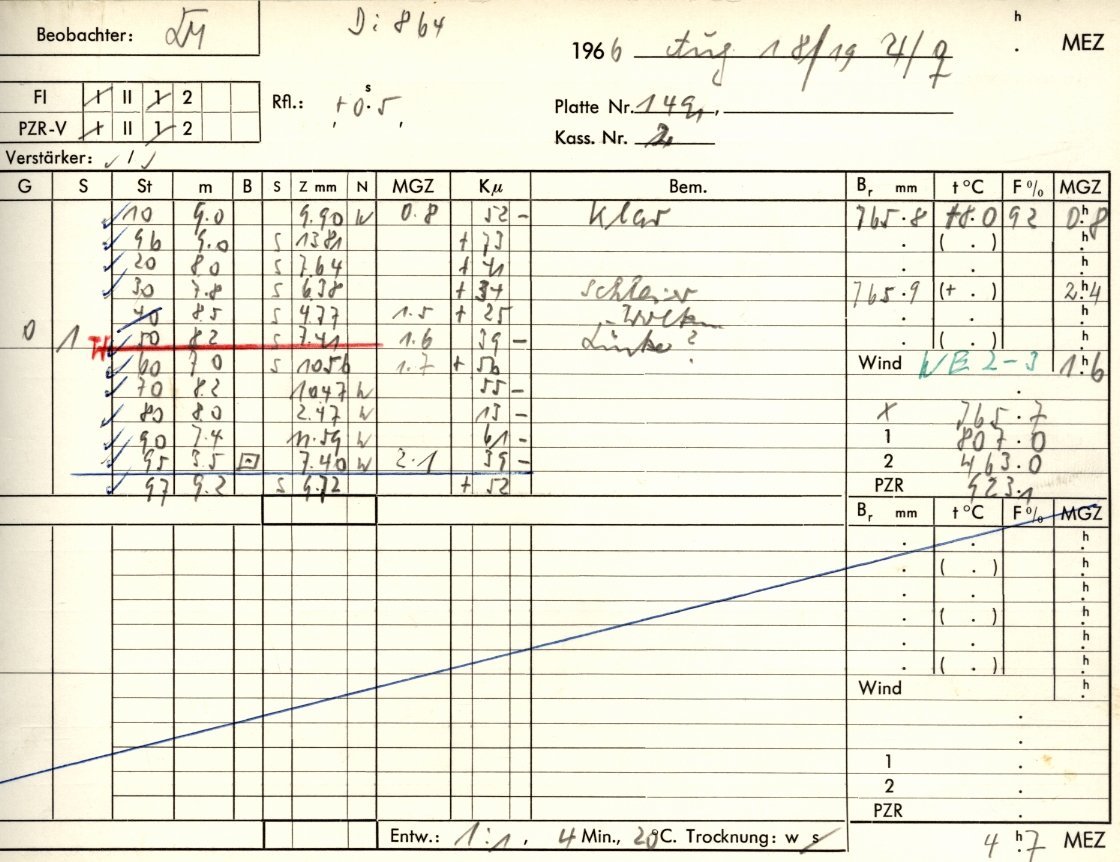 Beobachter:
Di 864
h
1966 Aug 18/19 ♃/♀ . MEZ
FI I II 1 2
Rfl.: +0ˢ.5
PZR-V I II 1 2
Platte Nr. 149,
Kass. Nr. 2
Verstärker: √ / √
G S St m B S Z mm N MGZ Kμ Bem. Bᵣ mm t °C F % MGZ
10 9.0 9.90 W 0.8 52 - klar 765.8 +8.0 92 0ʰ.8
96 9.0 S 1381 + 73 . ( . ) ʰ.
20 8.0 S 7.64 + 41 . . ʰ.
30 7.8 S 638 + 34 Schleier 765.9 (+ . ) 2ʰ.4
40 8.5 S 477 1.5 + 25 Wolken . . ʰ.
0 1 W 50 8.2 S 7.41 1.6 39 - Lücke? . ( . ) ʰ.
60 7.0 S 1056 1.7 + 56 Wind WE 2-3 1ʰ.6
70 8.2 1047 W 55 - .
80 8.0 2.47 W 13 - x 765.7
90 7.4 11.59 W 61 - 1 807.0
95 3.5 7.40 W 2.1 39 - 2 463.0
97 9.2 S 9.72 + 52 PZR 923.1
Bᵣ mm t °C F % MGZ
. . ʰ.
. ( . ) ʰ.
. . ʰ.
. ( . ) ʰ.
. . ʰ.
. ( . ) ʰ.
Wind ʰ.
.
.
1 .
2 .
PZR .
Entw.: 1:1, 4 Min., 20°C. Trocknung: w s
4ʰ.7 MEZ